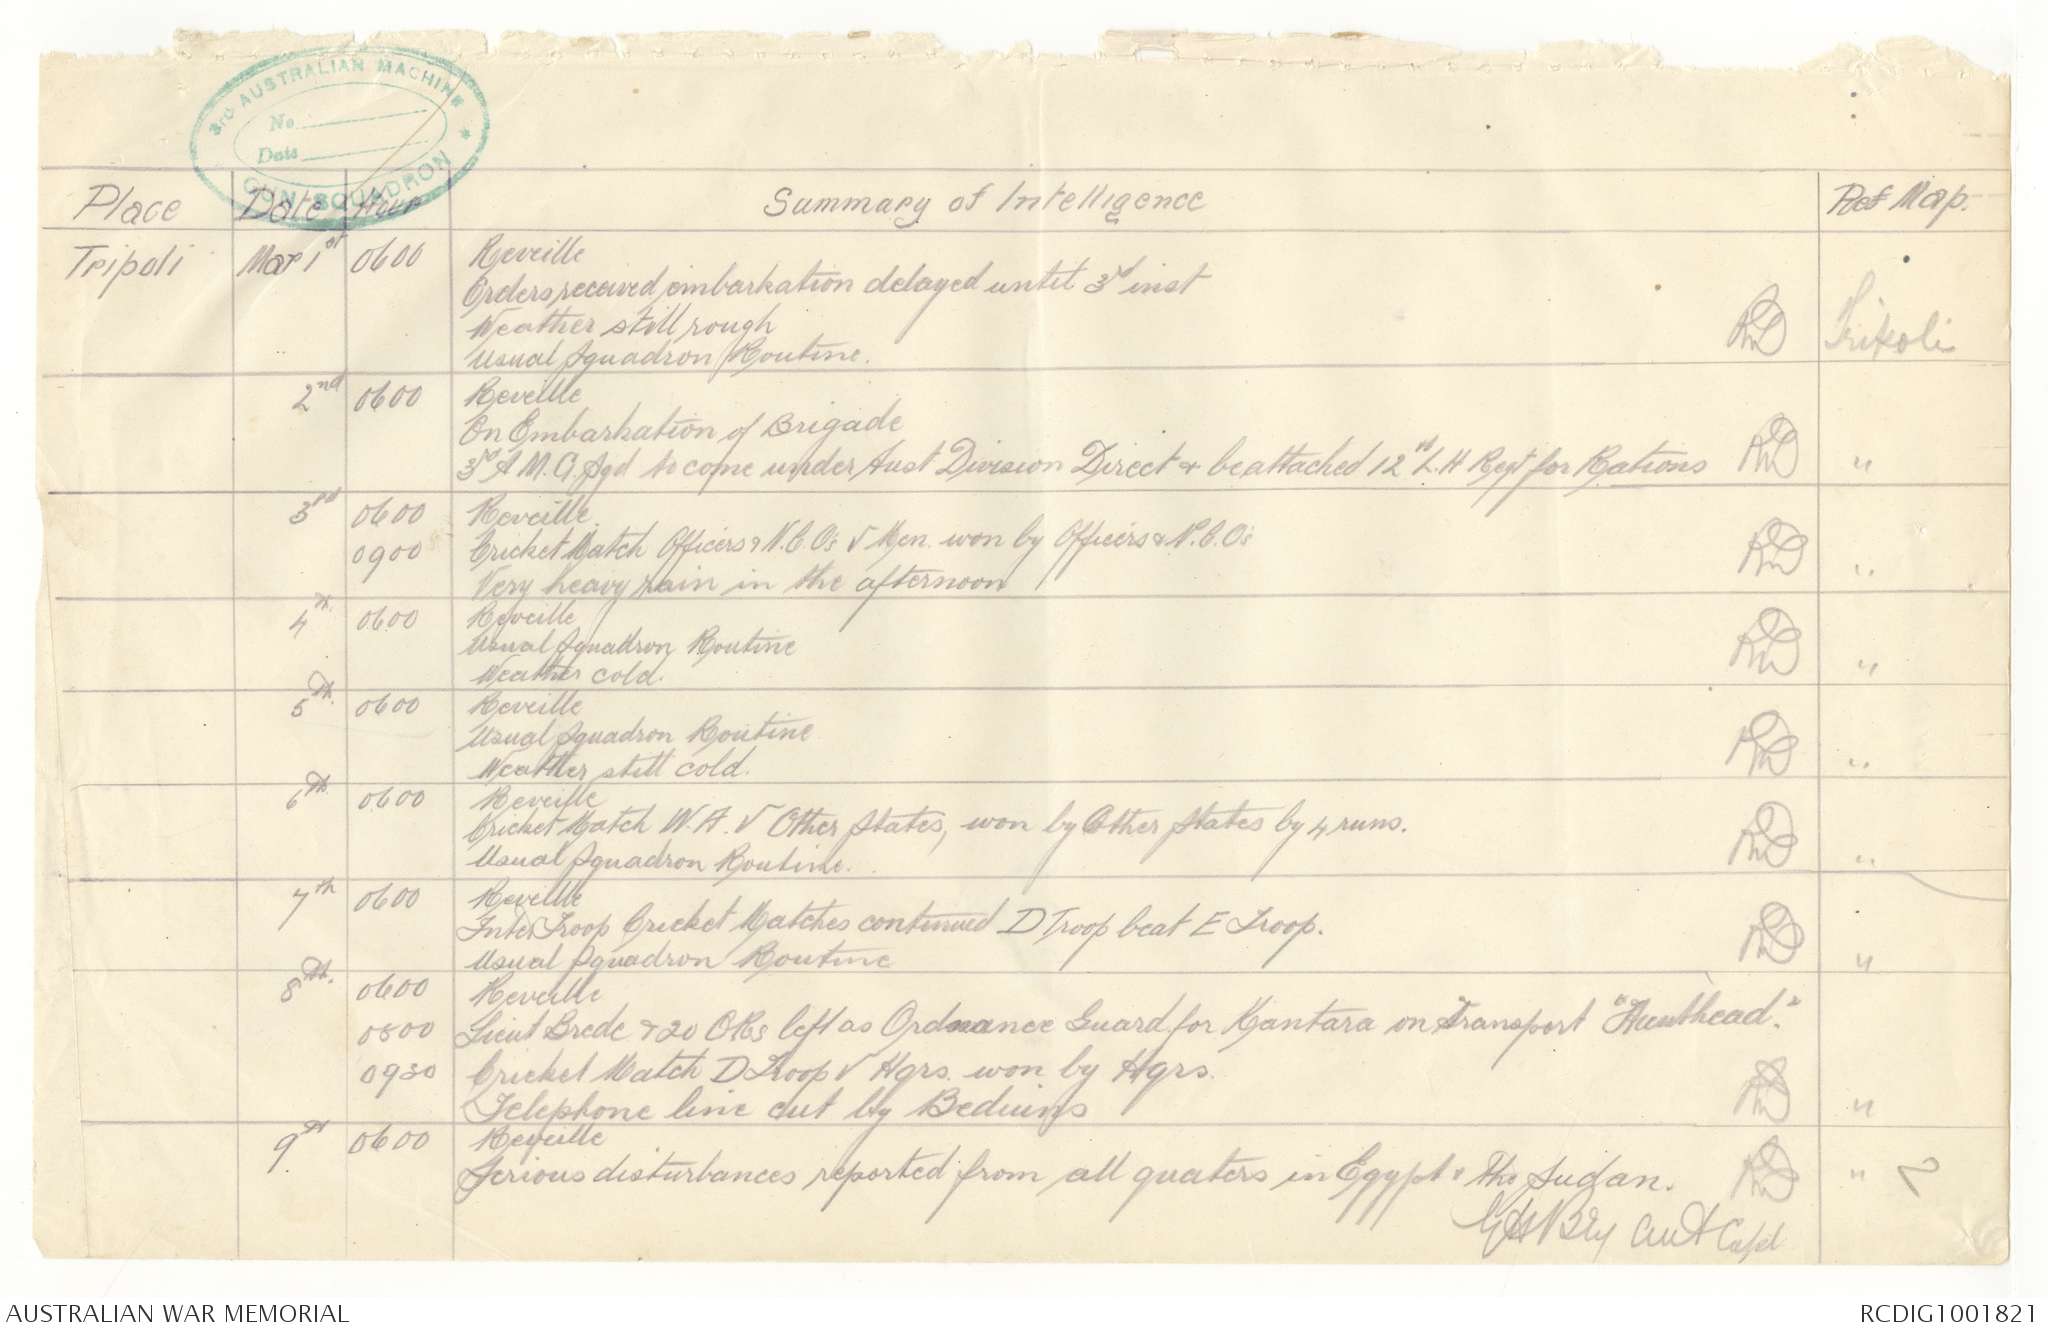 3rd AUSTRALIAN MACHINE
No.
Date
GUN SQUADRON
Place Date Hour Summary of Intelligence Ref Map.
Tripoli Mar 1st 0600 Reveille
Orders received embarkation delayed until 3rd inst
Weather still rough Tripoli
Usual Squadron Routine.
2nd 0600 Reveille
On Embarkation of Brigade
3rd A.M.G. Sqd to come under Aust Division Direct & be attached 12th L.H Regt for Rations "
3rd 0600 Reveille.
0900 Cricket Match Officers & N.C.O's v Men. won by Officers & N.C.O's
Very heavy rain in the afternoon "
4th 0600 Reveille
Usual Squadron Routine
Weather cold. "
5th 0600 Reveille
Usual Squadron Routine
Weather still cold. "
6th 0600 Reveille
Cricket Match W.A. v Other States, won by Other States by 4 runs.
Usual Squadron Routine. "
7th 0600 Reveille
Inter Troop Cricket Matches continued D Troop beat E Troop.
Usual Squadron Routine "
8th. 0600 Reveille
0800 Lieut Brede & 20 ORs left as Ordnance Guard for Kantara on Transport "Hunthead."
0930 Cricket Match D Troop v Hqrs. won by Hqrs.
Telephone line cut by Beduins "
9th 0600 Reveille
Serious disturbances reported from all quaters in Egypt & The Sudan. " 2
Capt
AUSTRALIAN WAR MEMORIAL RCDIG1001821